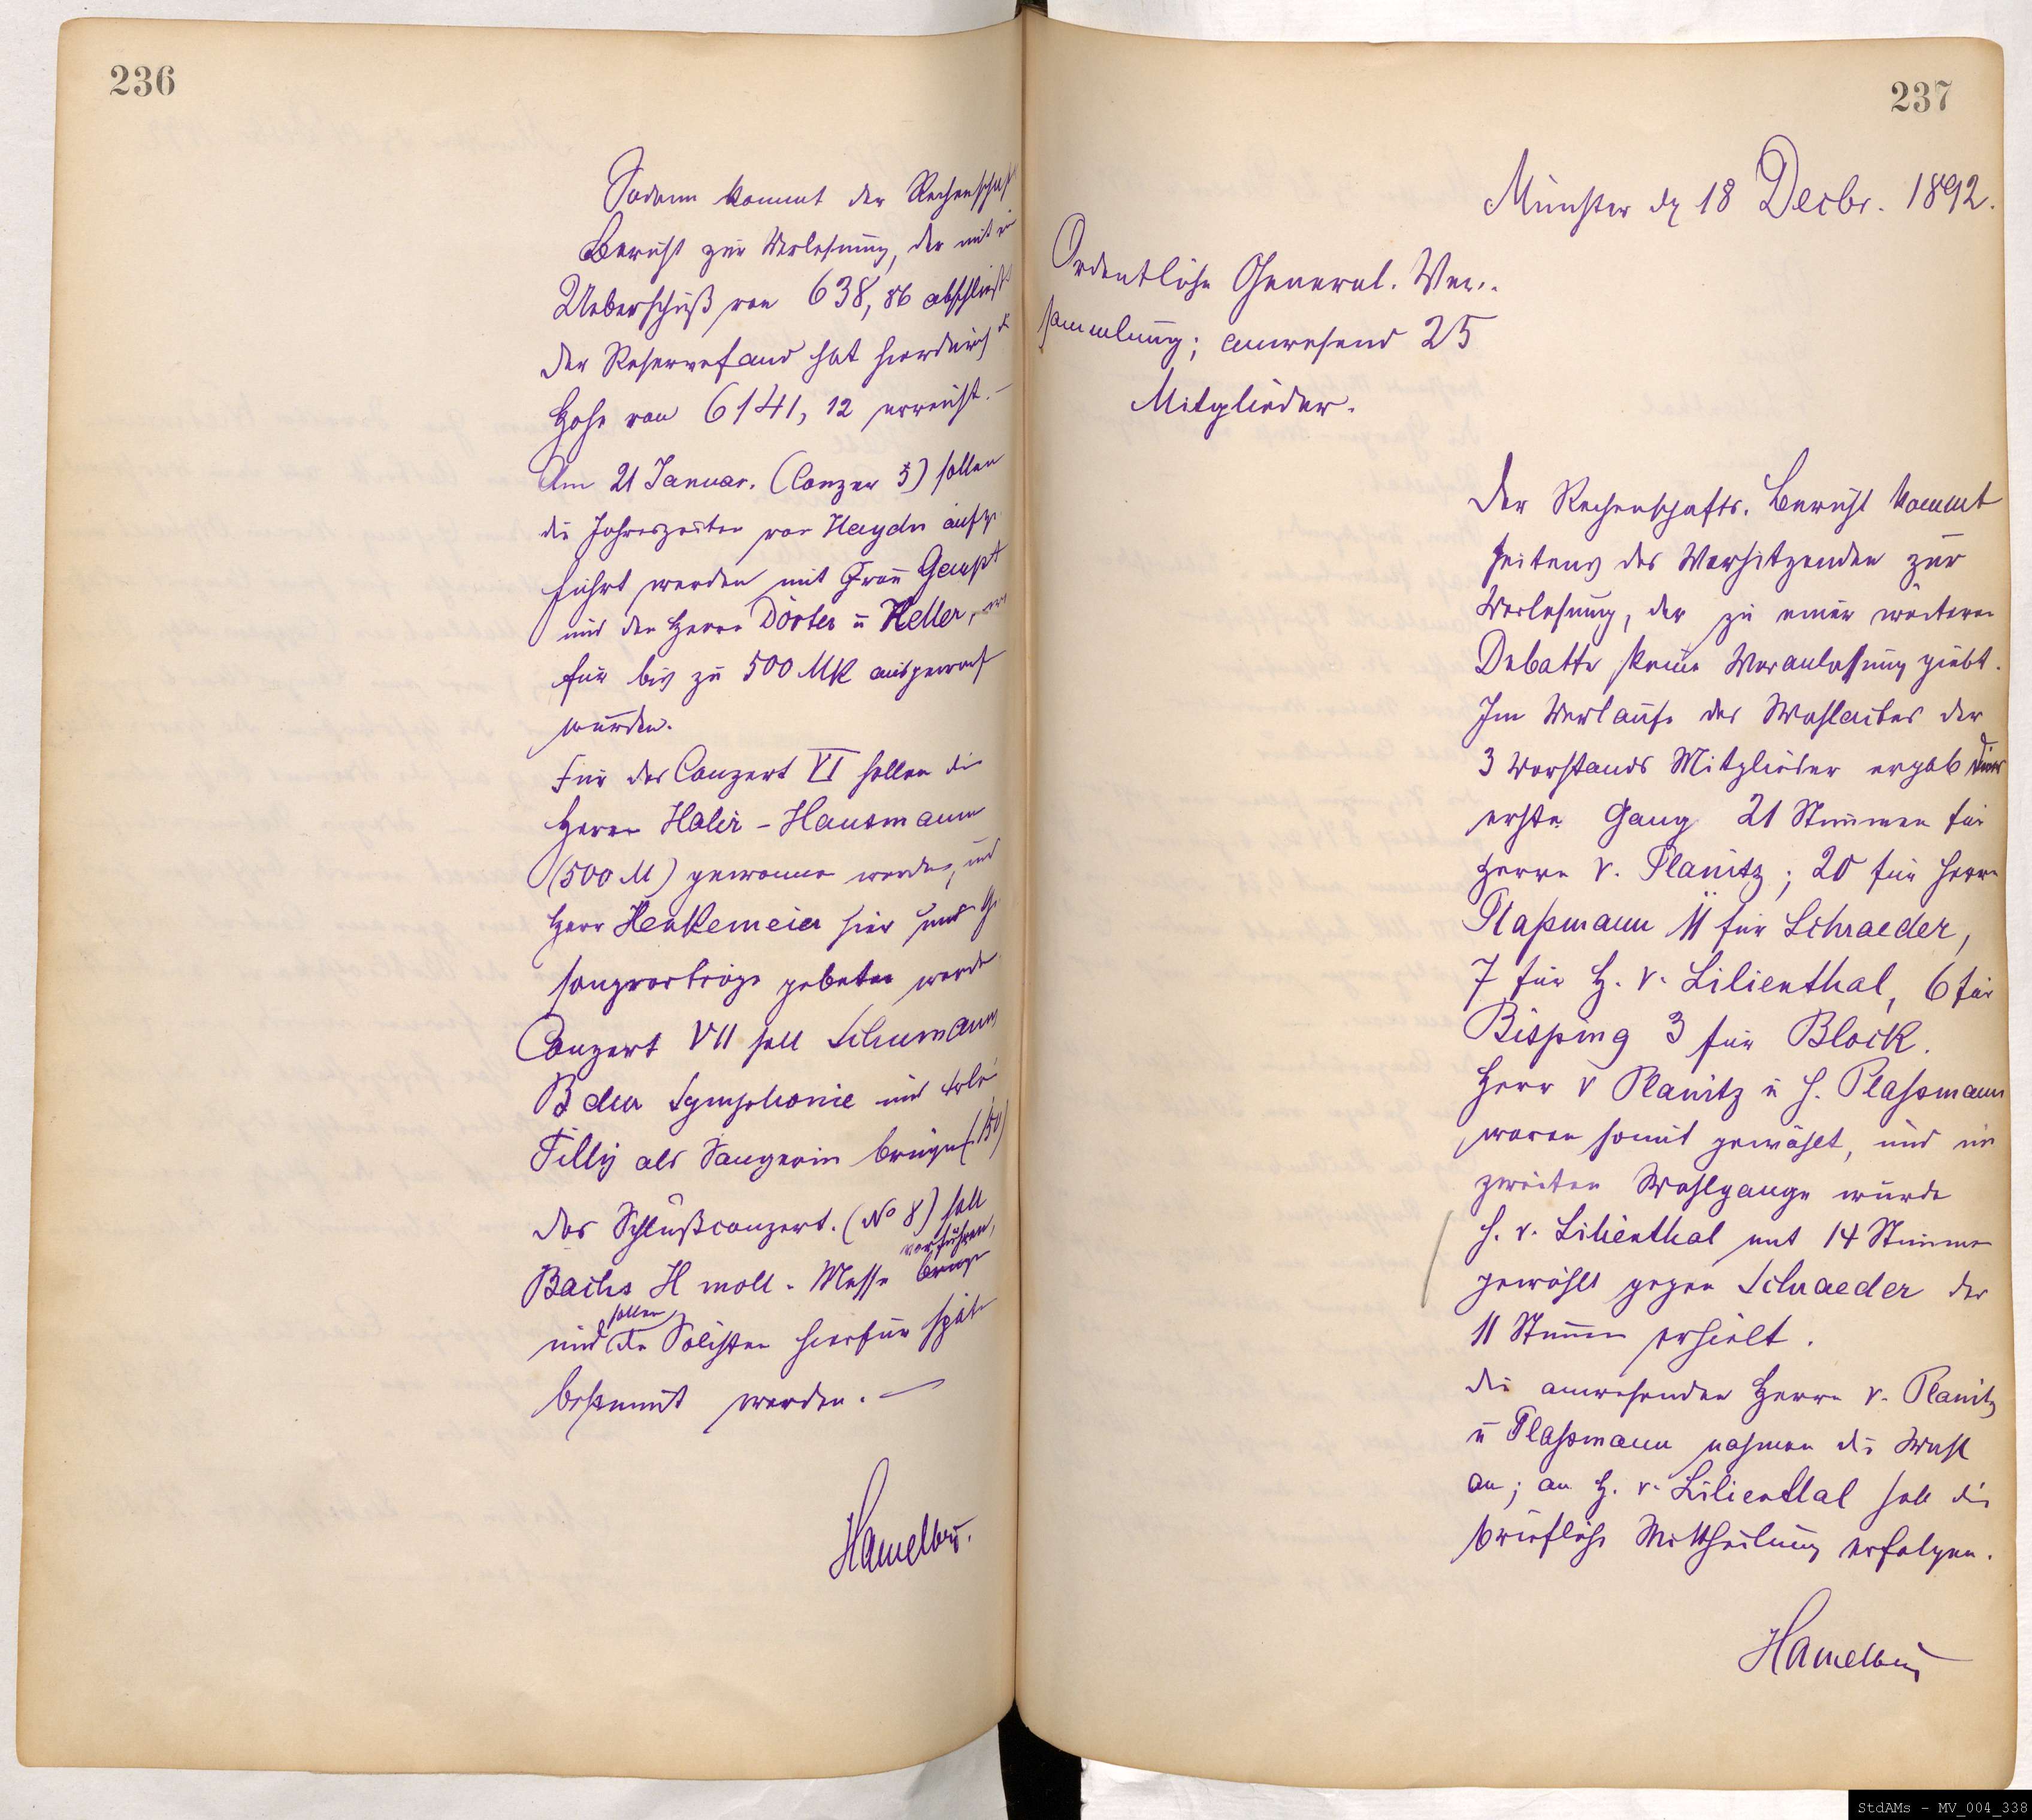 236
Sodann kommt der Rechenschafts
Bericht zur Verlesung, der mit ein
Ueberschuß von 638,86 abschließt
der Reservefond hat hierdurch d
Höhe von 6141,12 erreicht. –
Am 21 Januar. (Conzer 5) sollen
die Jahreszeiten von Haydn aufge
führt werden mit Frau
und den Herren Dörter u Heller,
für bis zu 500 MK ausgeworf
wurden.
Für das Conzert VI sollen die
Herren Halir – Hausmann
(500 M) gewonnen werden, und
Herr Henkemeier hier um Ge
sangvorträge gebeten werde
Conzert VII soll Schumanns
B dur Symphonie und Frl
Tilly als Sangerin bringen (150)
das Schlußconzert. (No 8) soll
vorführen,
Bachs H moll - Messe bringe
sollen
und die Solisten hierfür späte
bestimmt werden. —
Hamelbü.
237
Münster d 18 Decbr. 1892.
Ordentliche General. Ver..
sammlung; anwesend 25
Mitglieder.
Der Rechenschafts. Bericht kommt
seitens des Vorsitzenden zur
Verlesung, der zu einer weiteren
Debatte keine Veranlassung giebt.
Im Verlaufe des Wahlactes der
3 Vorstands Mitglieder ergab der
erste Gang 21 Stimmen für
Herrn v. Planitz; 20 für Herrn
Plaßmann 11 für Schraeder,
7 für H. v. Lilienthal, 6 für
Bisping 3 für Block.
Herr v Planitz u H. Plaßmann
waren somit gewählt, und im
zweiten Wahlgange wurde
H. v. Lilienthal mit 14 Stimmen
gewählt gegen Schraeder der
11 Stimmen erhielt.
die anwesenden Herren v. Planitz
u Plaßmann nahmen die Wahl
an; an H. v. Lilienthal soll die
briefliche Mittheilung erfolgen.
Hamelbü
StdAMs - MV_004_338